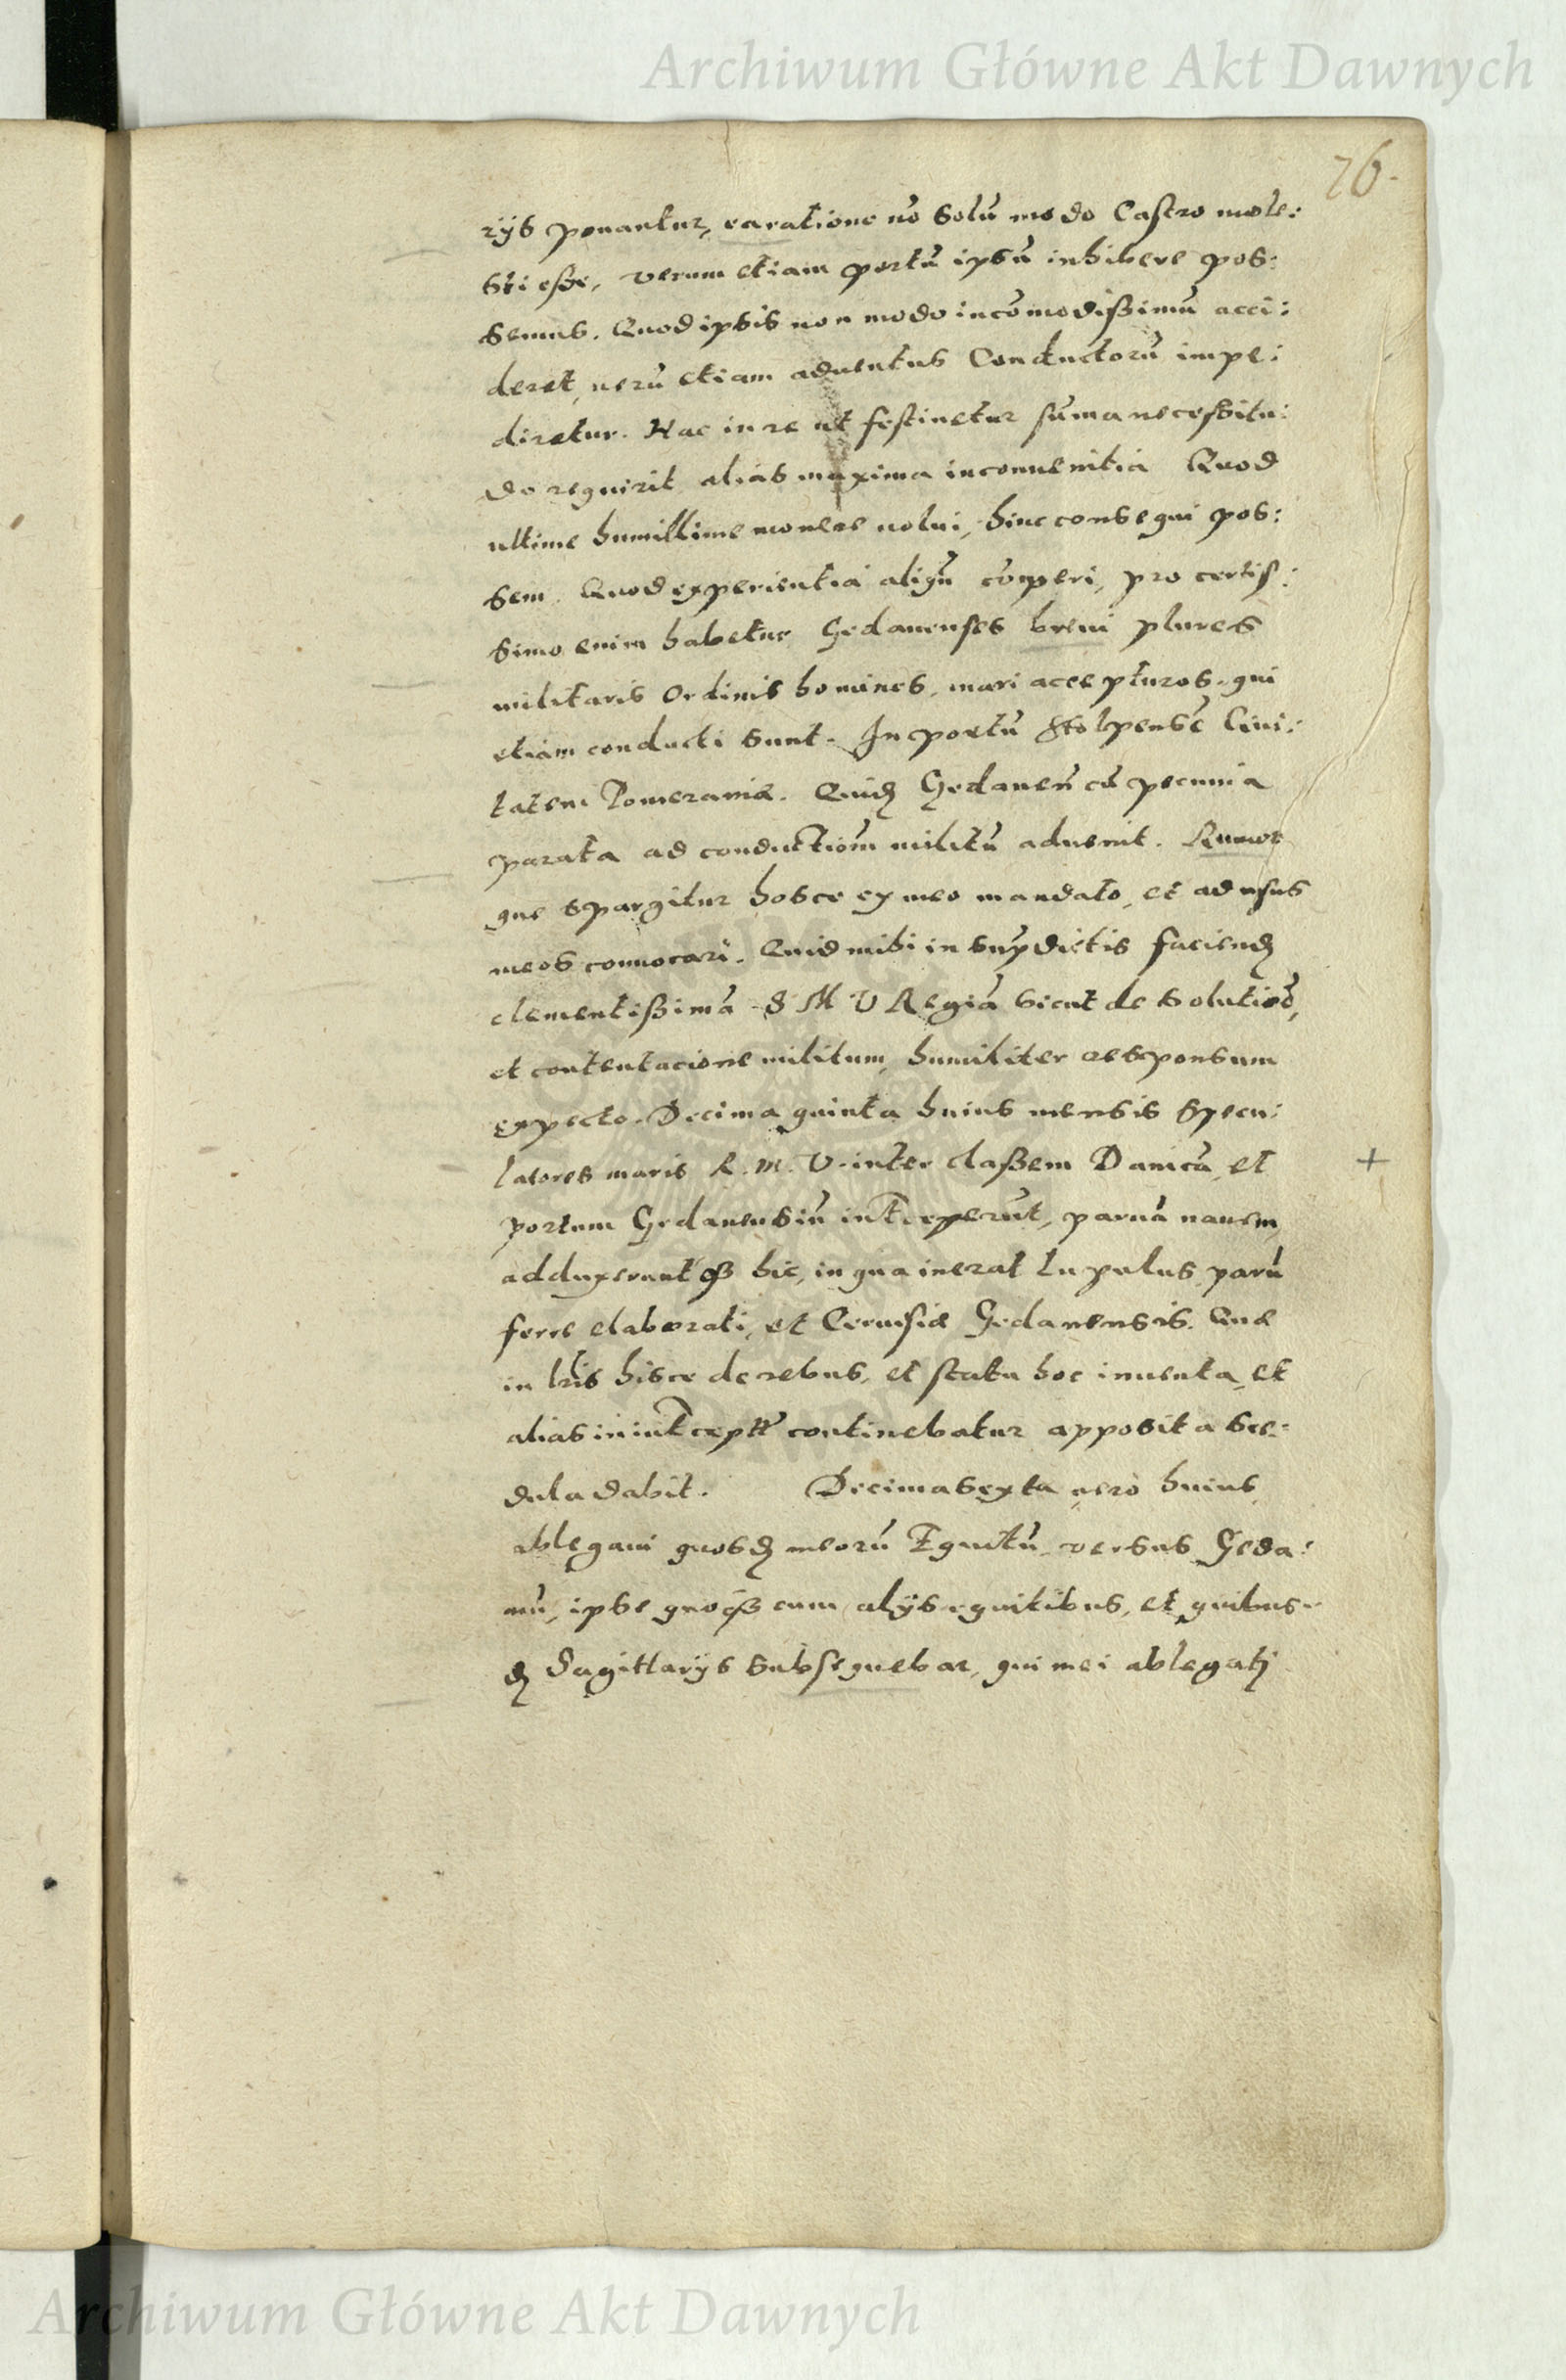 Archiwum Główne Akt Dawnych
76.
rijs ponantur, ea ratione nō solū modo Castro mole:
sti esse, verum etiam portū ipsū inhibere pos:
semus. Quod ipsis non modo incōmodissimū acci:
deret, uerū etiam aduentus Conductorū impe:
diretur. Hac in re ut festinetur sūma necessitu:
do requirit alias maxima inconuenitia Quod
ultime humillime monere uolui, hinc consequi pos:
sem. Quod experientia aliqn̄ cōmperi, pro certis:
simo enim habetur Gedanenses breui plures
militaris Ordinis homines, mari accepturos, qui
etiam conducti sunt. In portū Stolpensē Ciui:
tatem Pomeraniæ. Quidā Gedaneñ cū pecunia
parata ad conductiōm militū aduenit. Rumor
que spargitur hosce ex meo mandato, et ad usus
meos conuocari. Quid mihi in supdictis faciend
clementissimā S M V Regiā sicut de solutiōe,
et contentacione militum, humiliter responsum
expecto. Decima quinta huius mensis specu:
latores maris R. M. V. inter classem Danicā, et
+
portum Gedanensiū intceperūt, paruā nauem,
adduxerunt qz hic, in qua inerat lupulus parū
ferre elaborati, et Ceruisiæ Gedanensis. Quæ
in lris hisce de rebus, et statu hoc inuenta, et
alias in intcept continebatur apposita sce:
dula dabit. Decima sexta uero huius
ablegaui quosd meorū Equitū versus Geda:
nū, ipse quoqz cum alijs equitibus, et quibus
d Sagittarijs subsequebar, qui mei ablegatj
Archiwum Główne Akt Dawnych